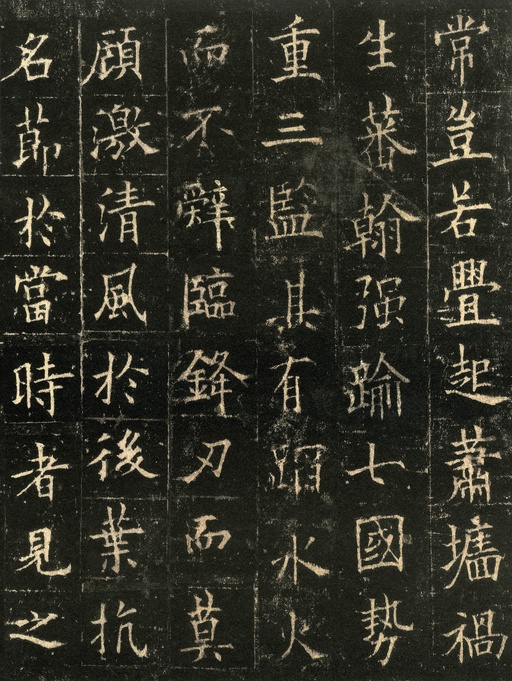 常豈若舋起蕭墻禍
生蕃翰强踰七國勢
重三監其有蹈水火
而不辤臨鋒刃而莫
顧激清風於後葉抗
名節於當時者見之